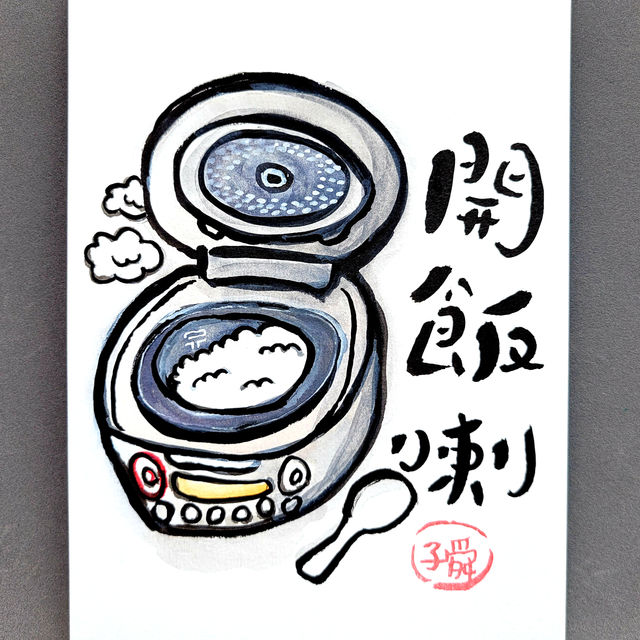 開
飯
喇
子舜